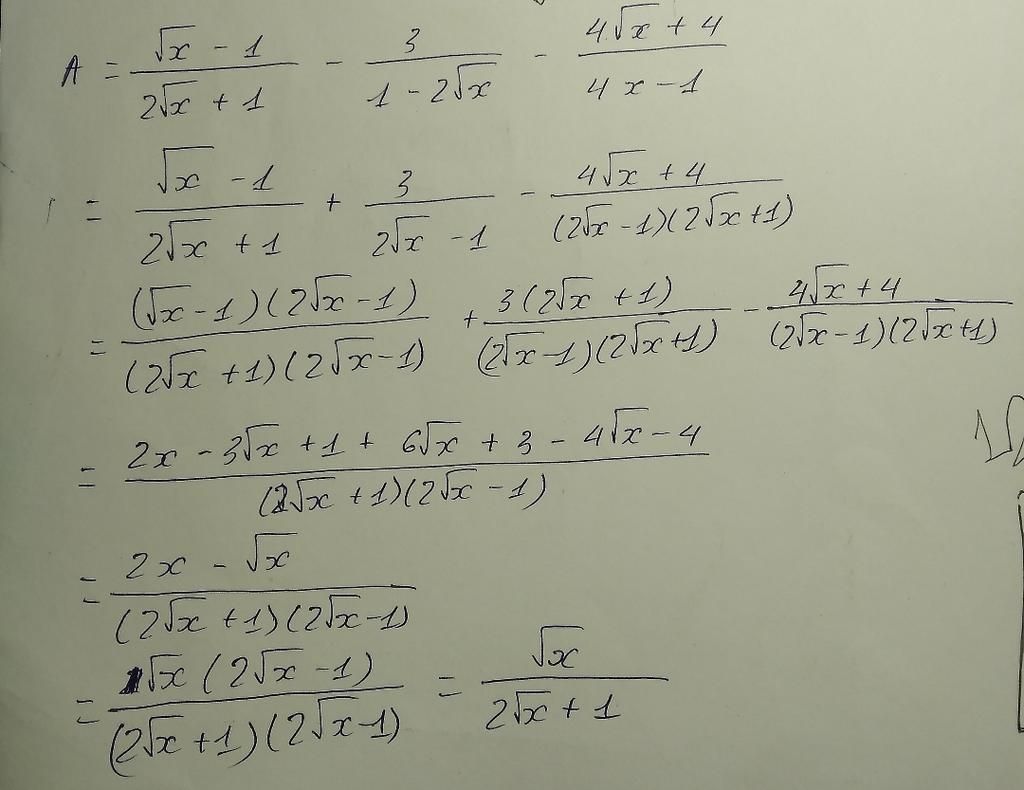 A = (√x - 1)/(2√x + 1) - 3/(1 - 2√x) - (4√x + 4)/(4x - 1)
= (√x - 1)/(2√x + 1) + 3/(2√x - 1) - (4√x + 4)/((2√x - 1)(2√x + 1))
= ((√x - 1)(2√x - 1))/((2√x + 1)(2√x - 1)) + (3(2√x + 1))/((2√x - 1)(2√x + 1)) - (4√x + 4)/((2√x - 1)(2√x + 1))
= (2x - 3√x + 1 + 6√x + 3 - 4√x - 4)/((2√x + 1)(2√x - 1))
= (2x - √x)/((2√x + 1)(2√x - 1))
= (√x(2√x - 1))/((2√x + 1)(2√x - 1)) = √x/(2√x + 1)